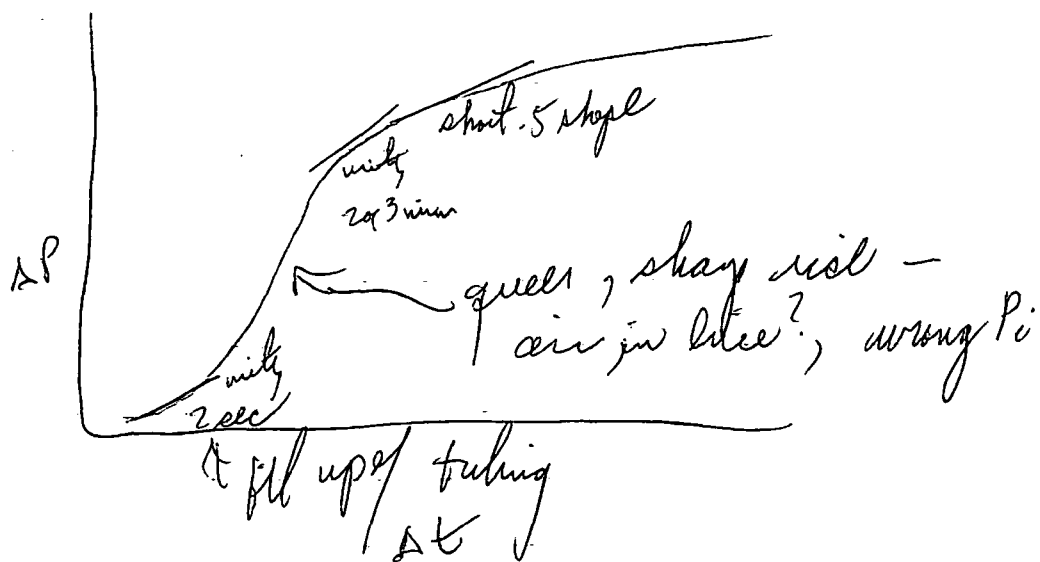 short .5 slope
unit
2 or 3 min
ΔP
queer, sharp rise —
air in line?, wrong Pi
unit
2 sec
fill up of tubing
Δt